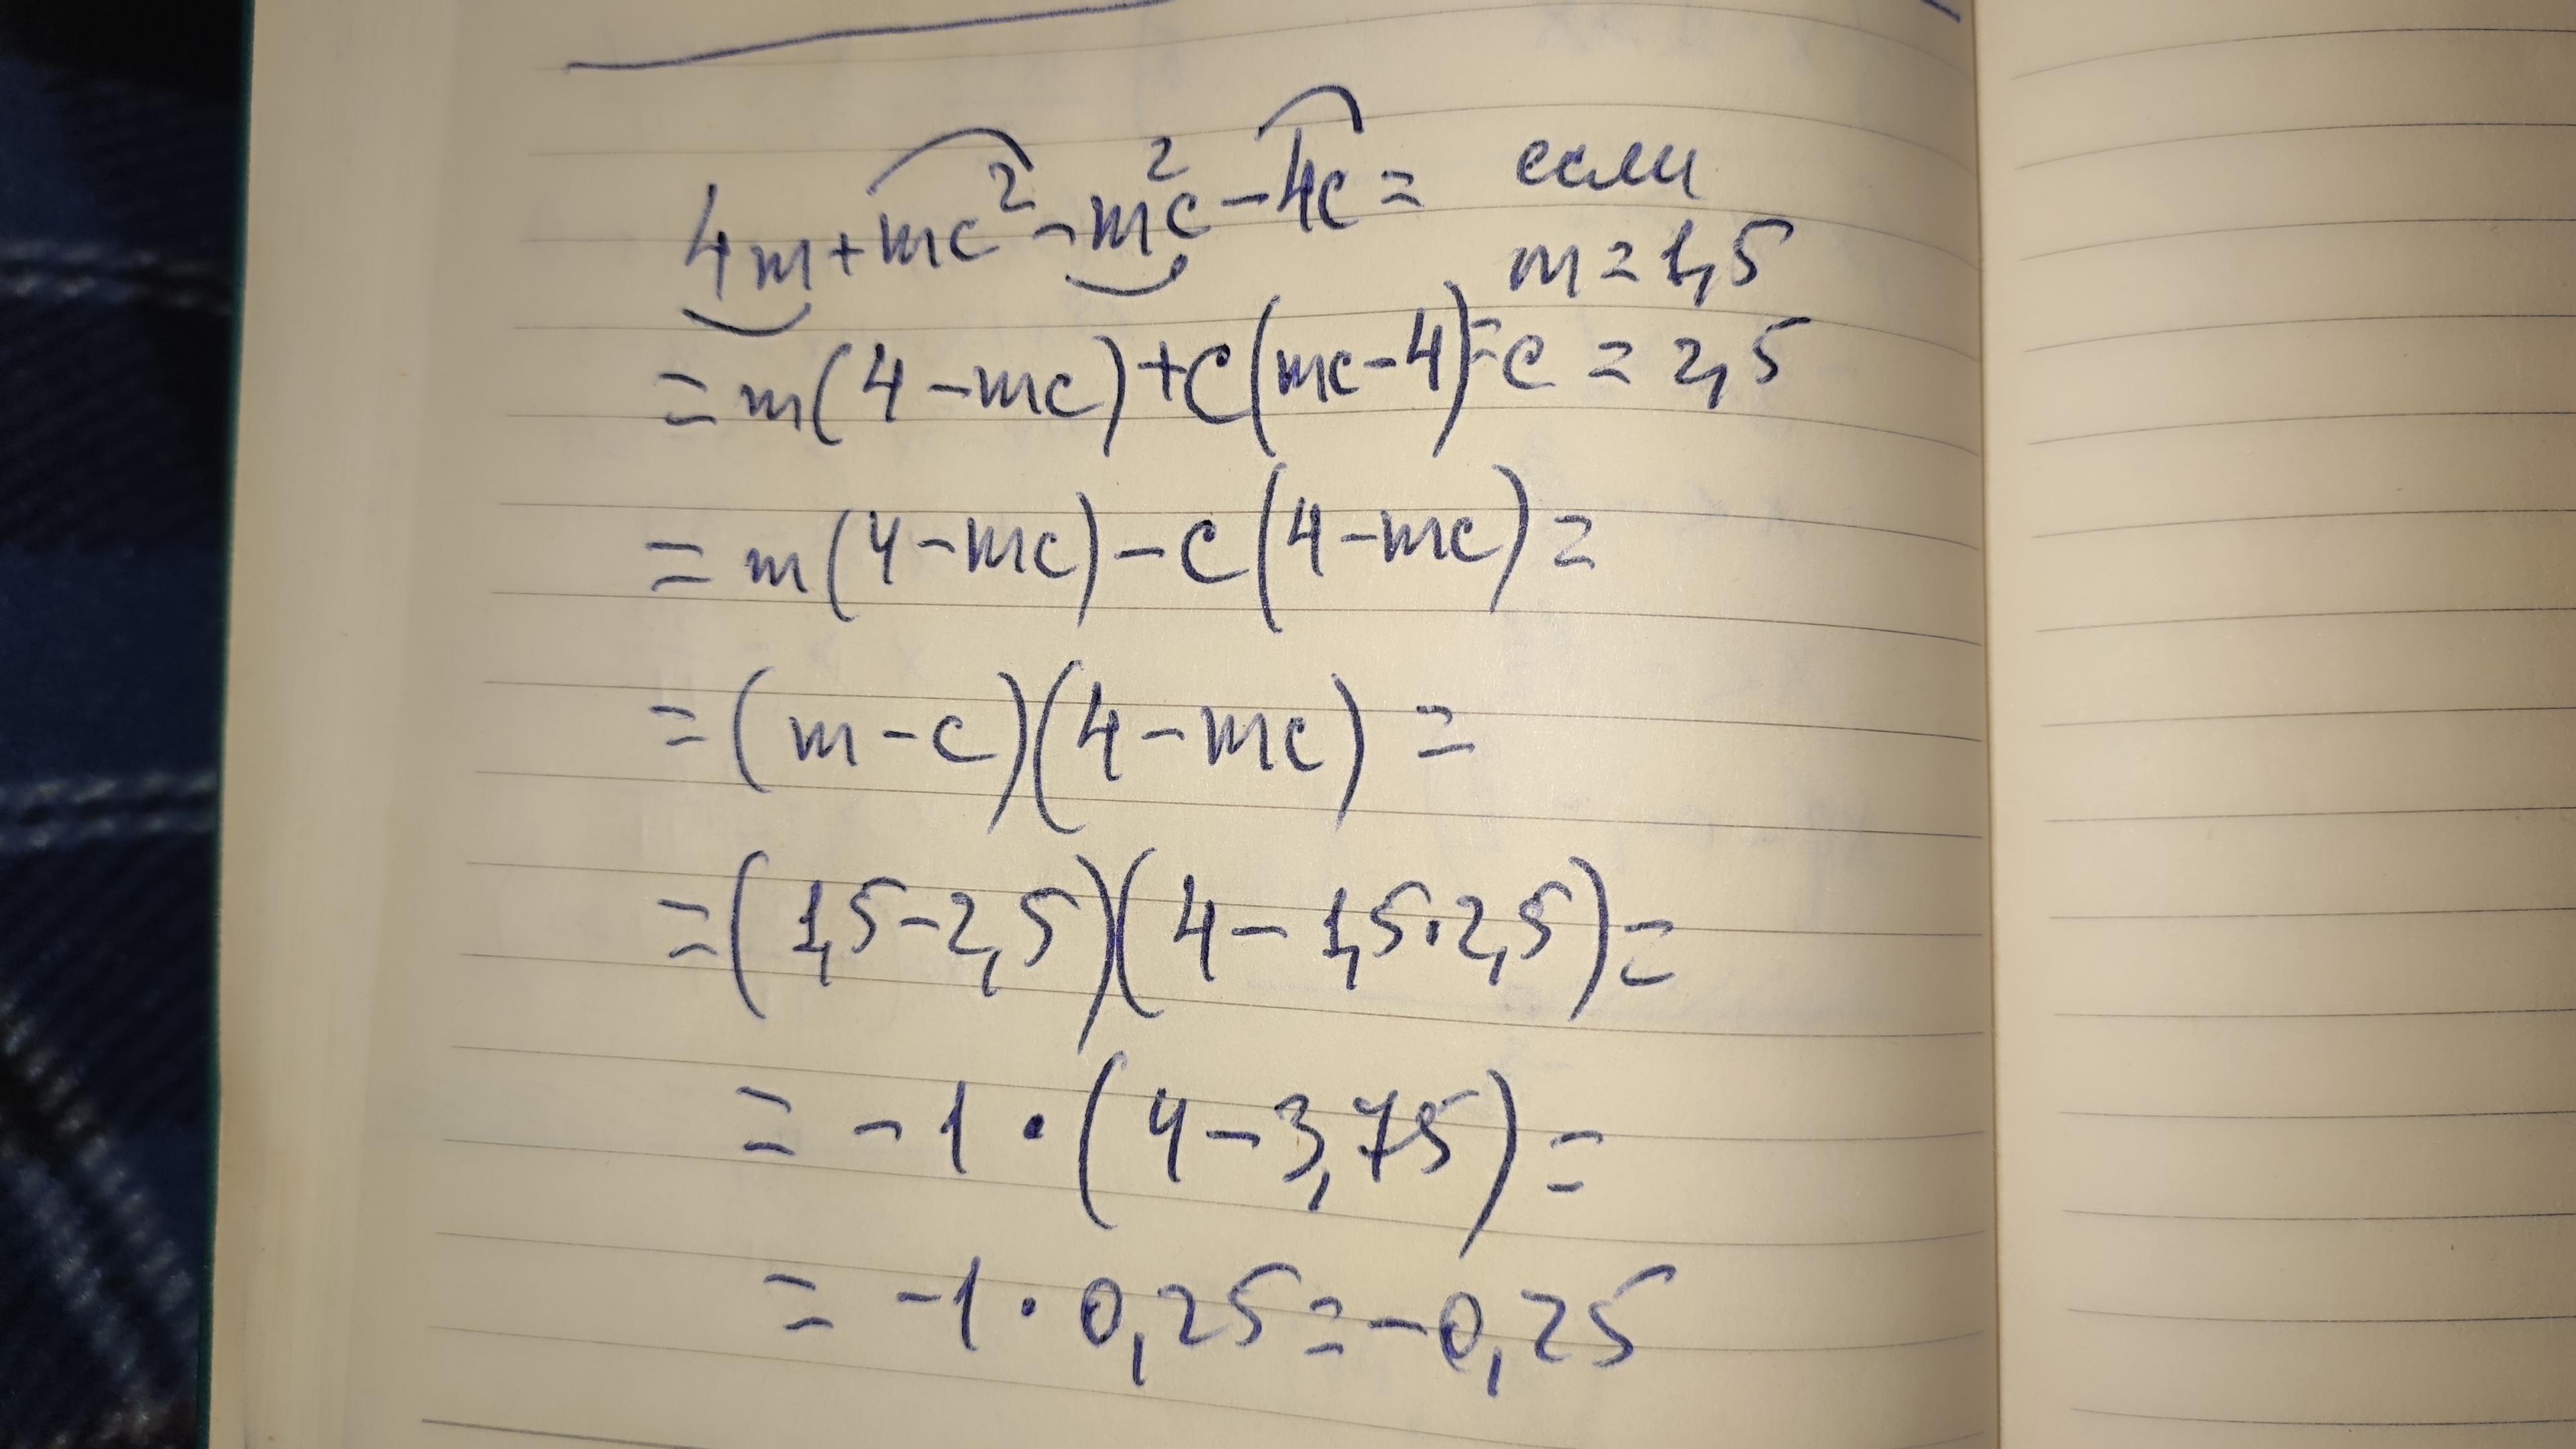 4m+mc²-m²c-4c= если
m=1,5
=m(4-mc)+c(mc-4)= c=2,5
=m(4-mc)-c(4-mc)=
=(m-c)(4-mc)=
=(1,5-2,5)(4-1,5·2,5)=
=-1·(4-3,75)=
=-1·0,25=-0,25